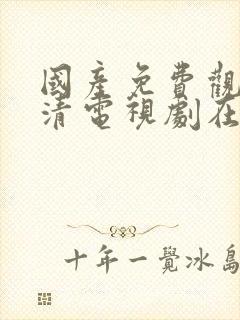 國產免費觀
清電視劇在
十年一覺冰島